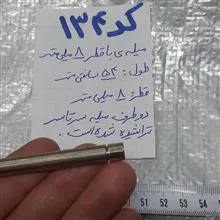 کد ۱۳۴
میله ی با قطر ۸ میلی متر
طول: ۵۴ سانتی متر
قطر: ۸ میلی متر
دو طرف میله سرتاسر
تراشیده شده است.
51 52 53 54